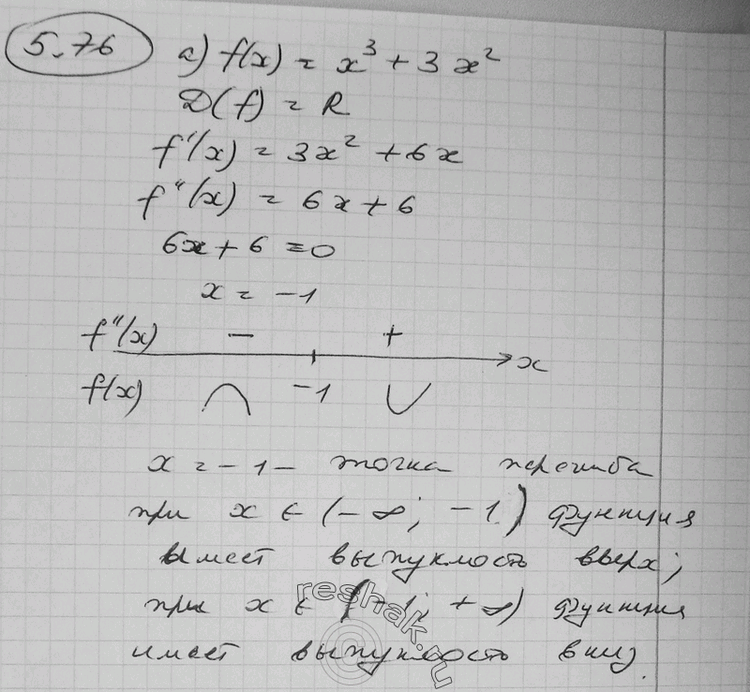 5.76 а) f(x) = x³ + 3x²
D(f) = R
f'(x) = 3x² + 6x
f"(x) = 6x + 6
6x + 6 = 0
x = -1
f"(x) − +
x
f(x) -1
x = -1 - точка перегиба
при x ∈ (-∞; -1) функция
имеет выпуклость вверх;
при x ∈ (-1; +∞) функция
имеет выпуклость вниз.
reshak.ru